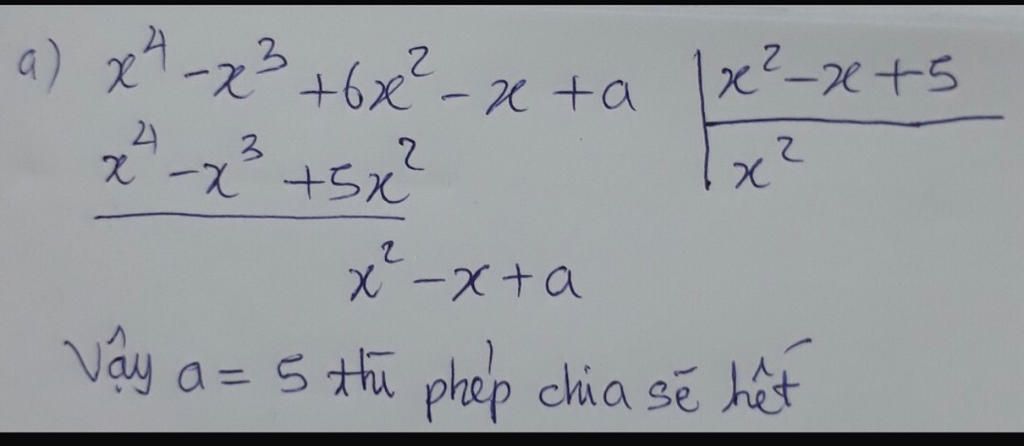 a) x⁴ - x³ + 6x² - x + a | x² - x + 5
x⁴ - x³ + 5x² | x²
x² - x + a
Vậy a = 5 thì phép chia sẽ hết